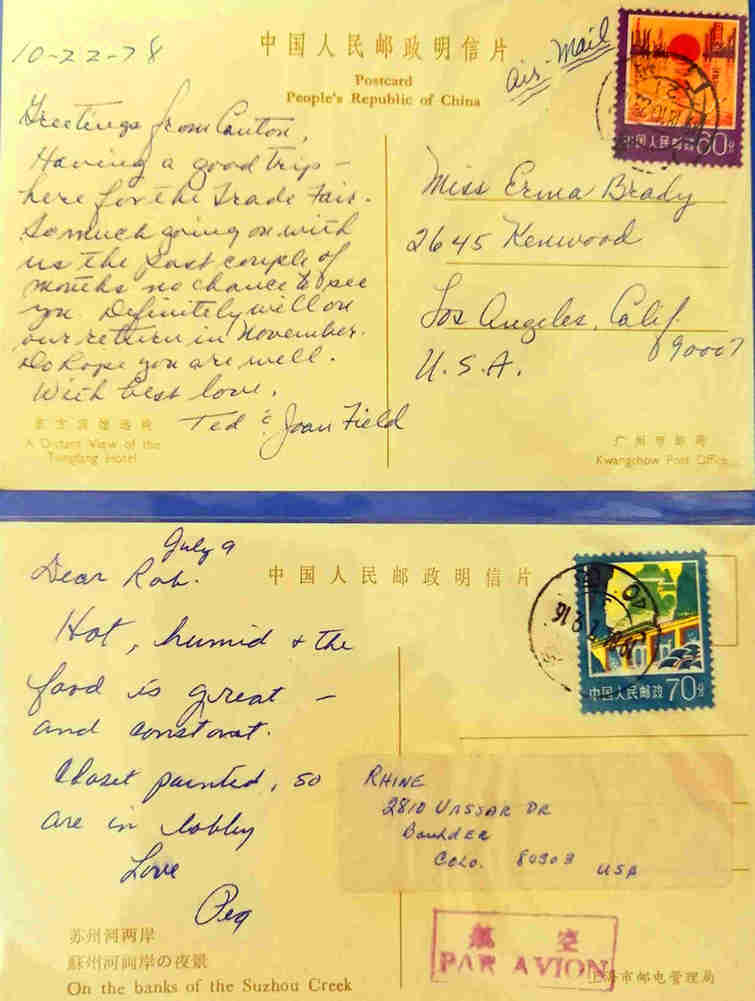 10-22-78
中国人民邮政明信片
Postcard
People's Republic of China
air-mail
中国人民邮政 60分
Greetings from Canton,
Having a good trip –
here for the Trade Fair.
So much going on with
us the past couple of
months no chance to see
you. Definitely will on
our return in November.
Do hope you are well.
With best love,
Ted & Joan Field
Miss Erma Brady
2645 Kenwood
Los Angeles, Calif.
90007
U.S.A.
东方宾馆远眺
A Distant View of the
Tungfang Hotel
广州市邮局
Kwangchow Post Office
July 9
Dear Rob.
中国人民邮政明信片
中国人民邮政 70分
Hot, humid & the
food is great –
and constant.
Closet painted, so
are in lobby
Love
Peg
RHINE
2810 VASSAR DR
Boulder
Colo. 80303 USA
航空
PAR AVION
苏州河两岸
蘇州河両岸の夜景
On the banks of the Suzhou Creek
上海市邮电管理局